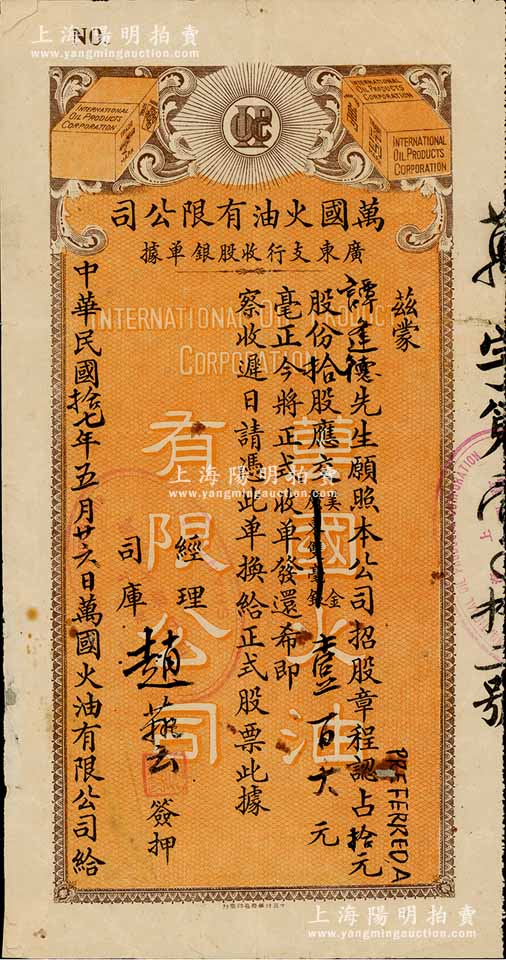 上海陽明拍賣
www.yangmingauction.com
NO.
INTERNATIONAL
OIL PRODUCTS
CORPORATION
INTERNATIONAL
OIL PRODUCTS
CORPORATION
司公限有油火國萬
據單銀股收行支東廣
INTERNATIONAL OIL PRODUCT
CORPORATION
萬國火油
有限公司
茲蒙
譚達德先生願照本公司招股章程認占拾元
PREFERRED A
股份拾股應交美金壹百大元
毫正今將正式收單發還希即
察收遲日請憑此單換給正式股票此據
經理
司庫
趙
簽押
中華民國拾七年五月廿六日萬國火油有限公司給
萬字第
號
上海陽明拍賣
www.yangmingauction.com
上海陽明拍賣
www.yangmingauction.com